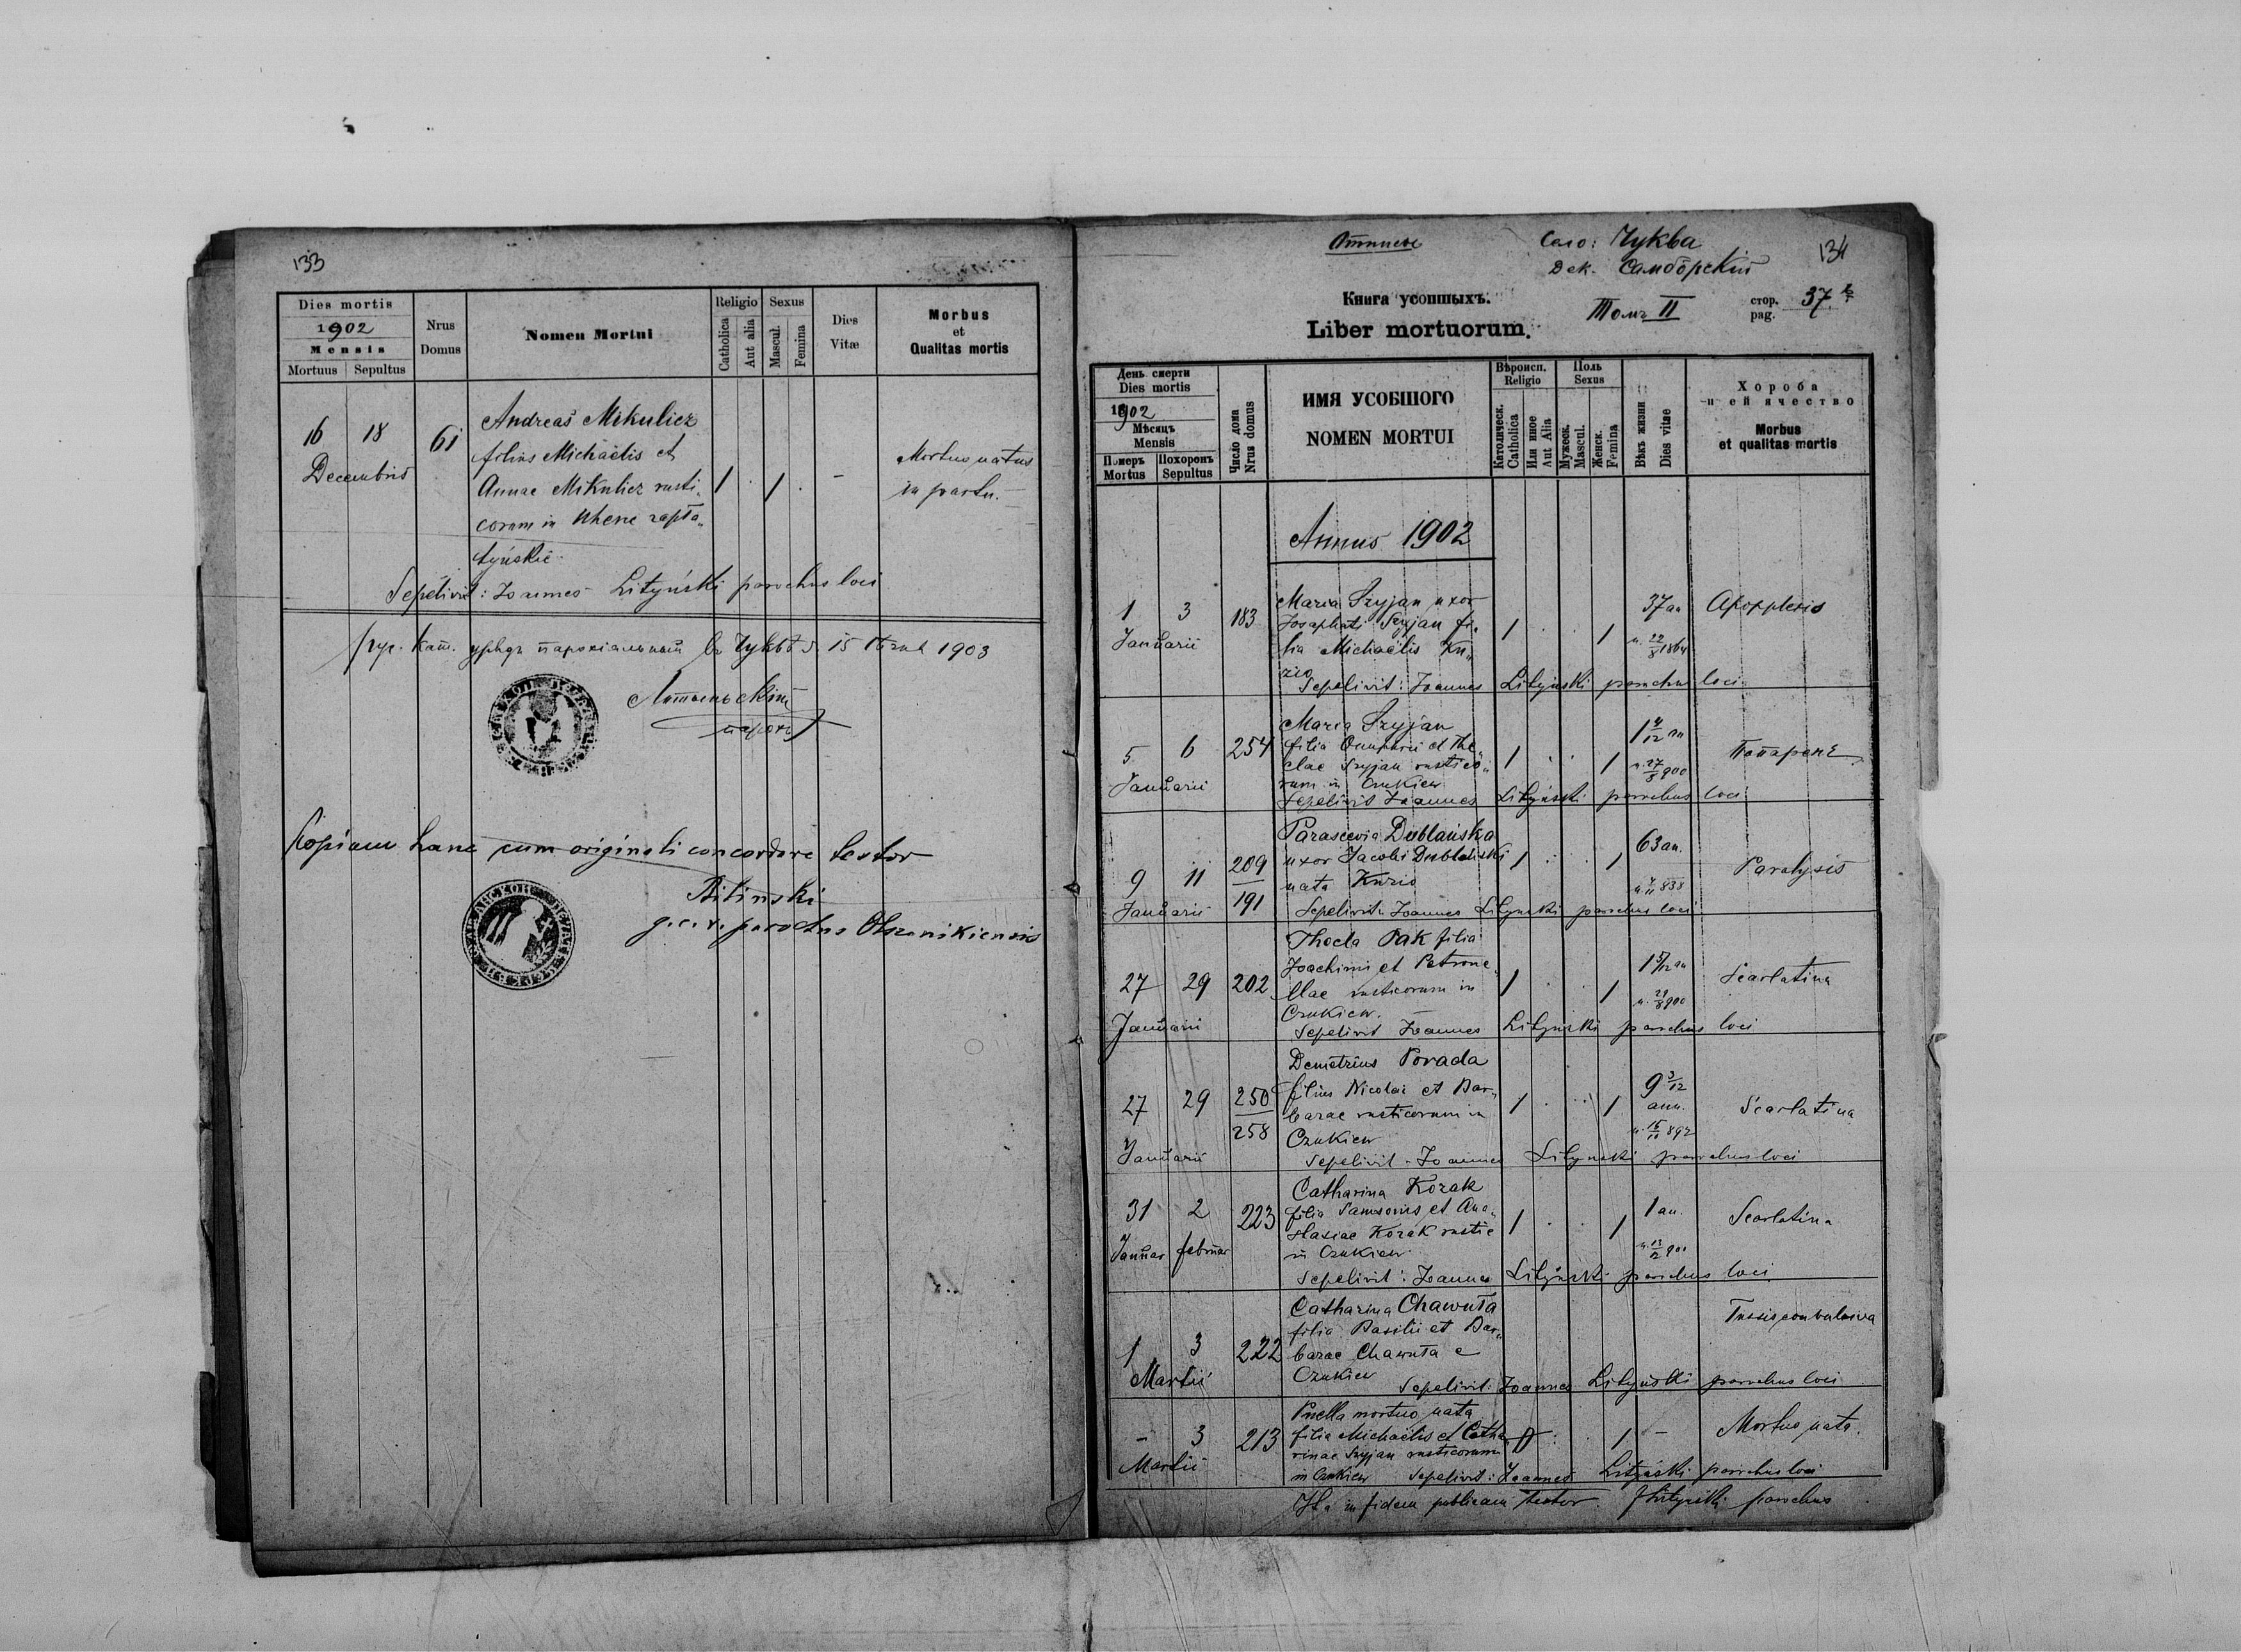 133
Dies mortis
1902
Mensis
Mortuus Sepultus
Nrus Domus
Nomen Mortui
Religio
Catholica
Aut alia
Sexus
Mascul.
Femina
Dies Vitæ
Morbus
et
Qualitas mortis
16 18 61
Decembris
Andreas Mikulicz
filius Michaëlis et
Annae Mikulicz rusti,
corum in
tyńskie
1 . 1 . -
Mortuo natus
in partu.
Sepelivit: Joannes Lityński parochus loci
гр. кат. урядъ парохіальный въ Чуквѣ 15 1903
Литыньскій
парохъ
Kopiam hanc cum originali concordare testor
Bilinski
g. c. r. parochus
134
Отписъ
Село: Чуква
Дек. Самбірскій
Книга усопшихъ.
Liber mortuorum.
Томъ II
стор.
pag. 37
День смерти
Dies mortis
1902
Мѣсяцъ
Mensis
Померъ Похоронъ
Mortus Sepultus
Число дома
Nrus domus
ИМЯ УСОБШОГО
NOMEN MORTUI
Вѣроисп.
Religio
Католическ.
Catholica
Или иное
Aut Alia
Полъ
Sexus
Мужеск.
Mascul.
Женск.
Femina
Вѣкъ жизни
Dies vitae
Хороба
и ей ячество
Morbus
et qualitas mortis
Annus 1902
1 3 183
Januarii
Maria Szyjan uxor
Josaphati Szyjan fi,
lia Michaëlis Ku,,
zio
1 . . 1
37 an
n. 22/8 1864
Apopplexis
Sepelivit: Joannes Lityński parochus loci
5 6 254
Januarii
Maria Szyjan
filia Onuphrii et The,,
clae Szyjan rustico,,
rum in Czukiew
1 . . 1
1 4/12 an
n. 27/8 900
Попаренє
Sepelivit Joannes Lityński parochus loci
9 11 209
191
Januarii
Parascevia Dublańska
uxor Jacobi Dublański
nata Kuzio
1 . . 1
63 an.
838
Paralysis
Sepelivit: Joannes Lityński parochus loci
27 29 202
Januarii
Thecla Pak filia
Joachimi et Petrone,
llae rusticorum in
Czukiew.
1 . . 1
1 5/12 an
n. 29/8 900
Scarlatina
Sepelivit Joannes Lityński parochus loci
27 29 250
258
Januarii
Demetrius Porada
filius Nicolai et Bar,,
barae rusticorum in
Czukiew
1 . . 1
9 3/12
ann.
n. 15/10 892
Scarlatina
Sepelivit - Joannes Lityński parochus loci
31 2 223
Januar februar
Catharina Kozak
filia Samsonis et Ana,,
stasiae Kozak rustic
in Czukiew
1 . . 1
1 an.
n. 13/12 900
Scarlatina
Sepelivit: Joannes Lityński parochus loci
1 3 222
Martii
Catharina Chawuła
filia Basilii et Bar,,
barae Chawuła e
Czukiew
Tussis convulsiva
Sepelivit: Joannes Lityński parochus loci
- 3 213
Martii
Puella mortuo nata
filia Michaëlis et Catha
rinae Szyjan rusticorum
in Czukiew
1 -
Mortuo nata.
Sepelivit: Joannes Lityński parochus loci
Ita in fidem publicam testor. J Lityński parochus